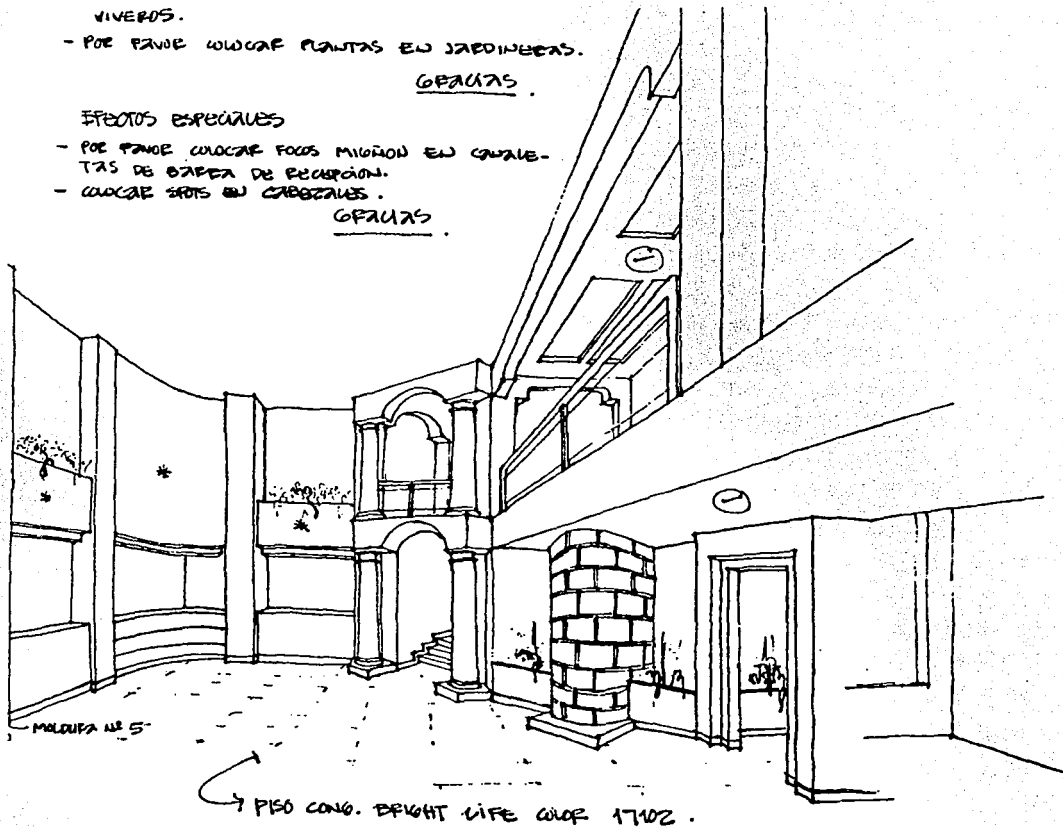 VIVEROS.
- POR FAVOR COLOCAR PLANTAS EN JARDINERAS.
GRACIAS.
EFECTOS ESPECIALES
- POR FAVOR COLOCAR FOCOS MIGÑON EN CANALE-
TAS DE BARRA DE RECEPCIÓN.
- COLOCAR SPOTS EN CABEZALES.
GRACIAS.
MOLDURA Nº 5
PISO CONG. BRIGHT LIFE COLOR 17102.